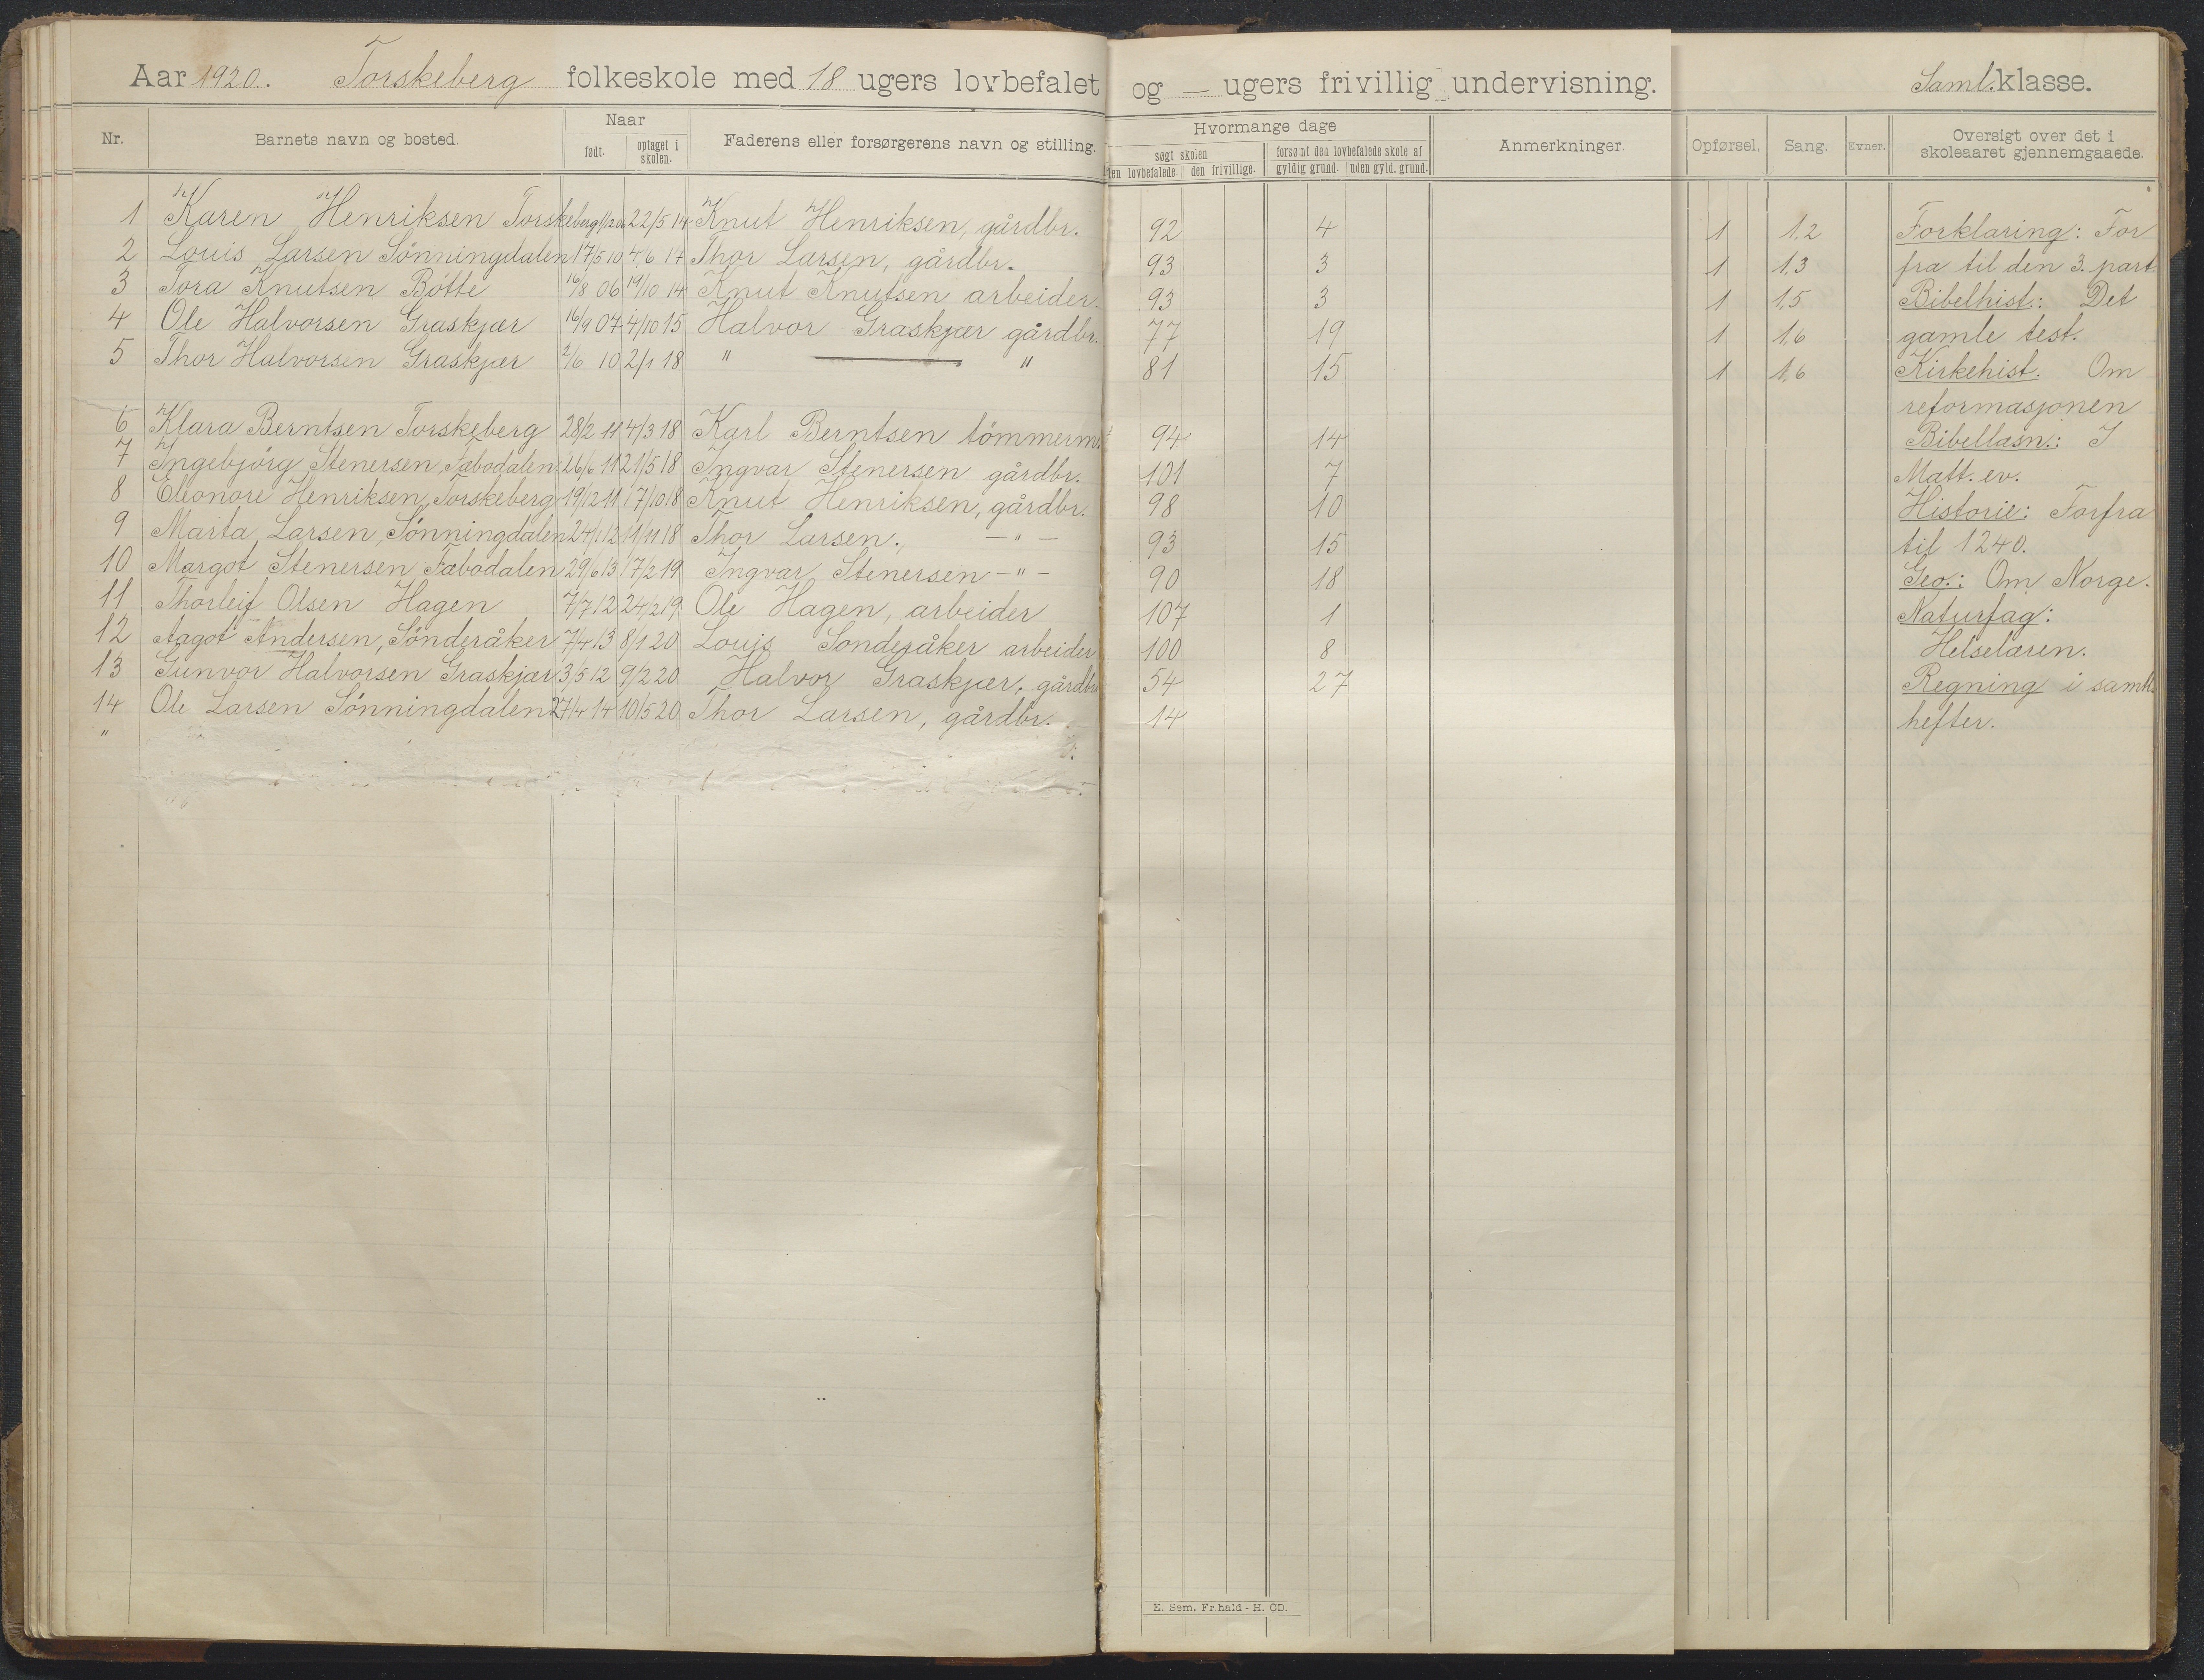 Aar 1920. Torskeberg folkeskole med 18 ugers lovbefalet og — ugers frivillig undervisning. Saml. klasse.
Nr. Barnets navn og bosted. Naar født. optaget i skolen. Faderens eller forsørgerens navn og stilling. Hvormange dage søgt skolen den lovbefalede den frivillige. forsømt den lovbefalede skole af gyldig grund. uden gyld. grund. Anmerkninger. Opførsel. Sang. Evner. Oversigt over det i skoleaaret gjennemgaaede.
1 Karen Henriksen Torskeberg 22/5 14 Knut Henriksen, gårdbr. 92 4 1 1,2 Forklaring: For
2 Louis Larsen Sönningdalen 17/5 10 4/6 17 Thor Larsen, gårdbr. 93 3 1 1,3 fra til den 3. part.
3 Tora Knutsen Bötte 16/8 06 19/10 14 Knut Knutsen arbeider. 93 3 1 1,5 Bibelhist.: Det
4 Ole Halvorsen Graskjær 16/9 07 4/10 15 Halvor Graskjær gårdbr. 77 19 1 1,6 gamle test.
5 Thor Halvorsen Graskjær 2/6 10 2/1 18 " — " 81 15 1 1,6 Kirkehist. Om
reformasjonen
6 Klara Berntsen Torskeberg 28/2 11 4/3 18 Karl Berntsen tömmerm. 94 14 Bibellæsn.: I
7 Ingebjörg Stenersen, Fæbodalen 26/6 11 21/5 18 Ingvar Stenersen gårdbr. 101 7 Matt. ev.
8 Eleonore Henriksen, Torskeberg 19/12 11 17/10 18 Knut Henriksen, gårdbr. 98 10 Historie: Forfra
9 Marta Larsen, Sönningdalen 24/1 12 11/11 18 Thor Larsen. — " — 93 15 til 1240.
10 Margot Stenersen Fæbodalen 29/6 13 17/2 19 Ingvar Stenersen — " — 90 18 Geo.: Om Norge.
11 Thorleif Olsen Hagen 7/7 12 24/2 19 Ole Hagen, arbeider 107 1 Naturfag:
12 Aagot Andersen, Sönderåker 7/4 13 8/1 20 Louis Sönderåker arbeider 100 8 Helselæren.
13 Gunvor Halvorsen Graskjær 3/5 12 9/2 20 Halvor Graskjær, gårdbr. 54 27 Regning i samk.
14 Ole Larsen Sönningdalen 27/4 14 10/5 20 Thor Larsen, gårdbr. 14 hefter.
"
E. Sem. Fr.hald - H. CD.